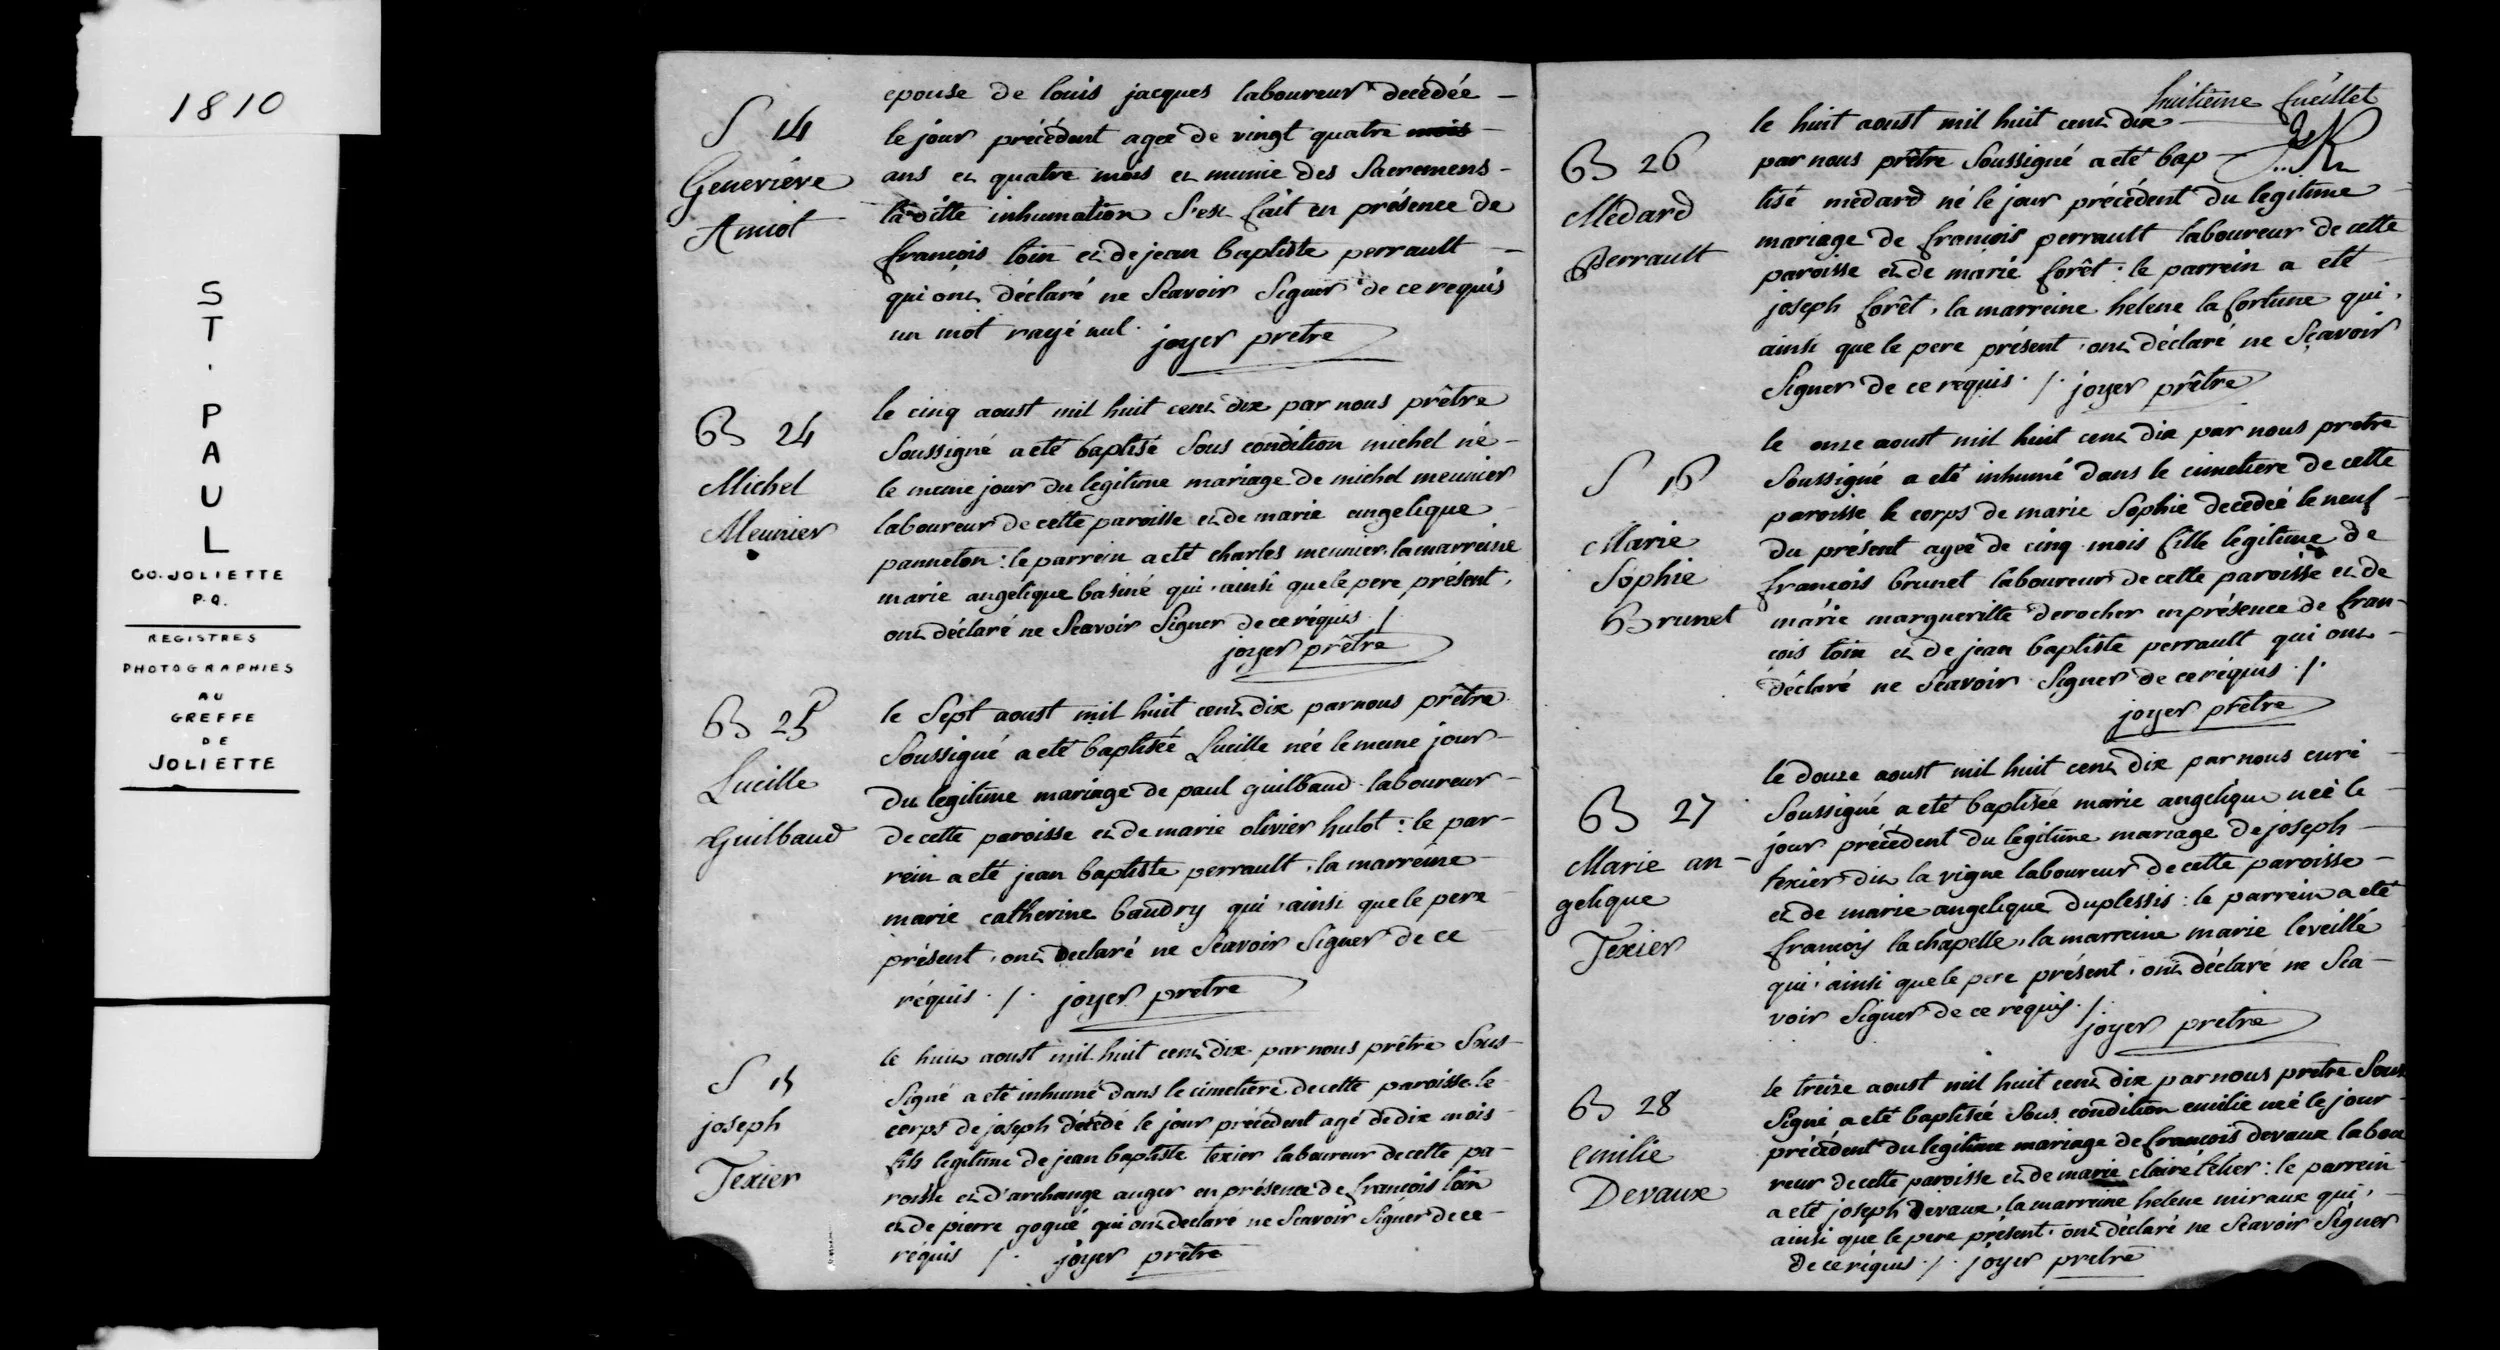 1810
ST. PAUL
CO. JOLIETTE
P.Q.
REGISTRES
PHOTOGRAPHIES
AU
GREFFE
DE
JOLIETTE
S 14
Geneviève
Amiot
epouse de louis jacques laboureur décédée
le jour précédent ageé de vingt quatre mois
ans et quatre mois et munie des Sacremens
la ditte inhumation S'est fait en présence de
françois loin et de jean baptiste perrault
qui ont déclaré ne Scavoir Signer de ce requis
un mot rayé nul. joyer prêtre
B 24
Michel
Meunier
le cinq aoust mil huit cent dix par nous prêtre
Soussigné a eté baptisé Sous condition michel né
le meme jour du legitime mariage de michel meunier
laboureur de cette paroisse et de marie angelique
panneton : le parrein a eté charles meunier, la marreine
marie angelique basiné qui, ainsi que le pere présent,
ont déclaré ne Scavoir Signer de ce réquis /
joyer prêtre
B 25
Lucille
Guilbaud
le Sept aoust mil huit cent dix par nous prêtre
Soussigné a eté baptisée Lucille née le meme jour
du legitime mariage de paul guilbaud laboureur
de cette paroisse et de marie olivier hulot : le par-
rein a eté jean baptiste perrault, la marreine
marie catherine baudry qui, ainsi que le pere
présent, ont declaré ne Scavoir Signer de ce
réquis. /. joyer prêtre
S 15
joseph
Texier
le huit aoust mil huit cent dix par nous prêtre Sous-
Signé a eté inhumé dans le cimetiere de cette paroisse le
corps de joseph décédé le jour précédent agé de dix mois
fils legitime de jean baptiste texier laboureur de cette pa-
roisse et d'archange auger en présence de françois loin
et de pierre gogué qui ont declaré ne Scavoir Signer de ce
réquis /. joyer prêtre
huitième fueillet
B 26
Médard
Perrault
le huit aoust mil huit cent dix
par nous prêtre Soussigné a eté bap
tisé médard né le jour précédent du legitime
mariage de françois perrault laboureur de cette
paroisse et de marie forêt : le parrein a eté
joseph forêt, la marreine helene la fortune qui,
ainsi que le pere présent, ont déclaré ne Scavoir
Signer de ce réquis. /. joyer prêtre
S 16
Marie
Sophie
Brunet
le onze aoust mil huit cent dix par nous prêtre
Soussigné a eté inhumé dans le cimetiere de cette
paroisse le corps de marie Sophie décédée le neuf
du présent ageé de cinq mois fille legitime de
françois brunet laboureur de cette paroisse et de
marie margueritte derocher en présence de fran-
cois loin et de jean baptiste perrault qui ont
déclaré ne Scavoir Signer de ce réquis. /.
joyer prêtre
B 27
Marie an-
gelique
Texier
le douze aoust mil huit cent dix par nous curé
Soussigné a eté baptisée marie angélique neé le
jour précédent du legitime mariage de joseph
texier dit la vigne laboureur de cette paroisse
et de marie angelique duplessis : le parrein a eté
françois lachapelle, la marreine marie leveillé
qui, ainsi que le pere présent, ont déclaré ne Sca-
voir Signer de ce réquis. /.
joyer prêtre
B 28
Emilie
Devaux
le treize aoust mil huit cent dix par nous prêtre Sous
Signé a eté baptisée Sous condition emilie neé le jour
précédent du legitime mariage de françois devaux labou
reur de cette paroisse et de marie claire telier : le parrein
a eté joseph devaux, la marreine helene miraux qui,
ainsi que le pere présent, ont déclaré ne Scavoir Signer
de ce réquis. /. joyer prêtre